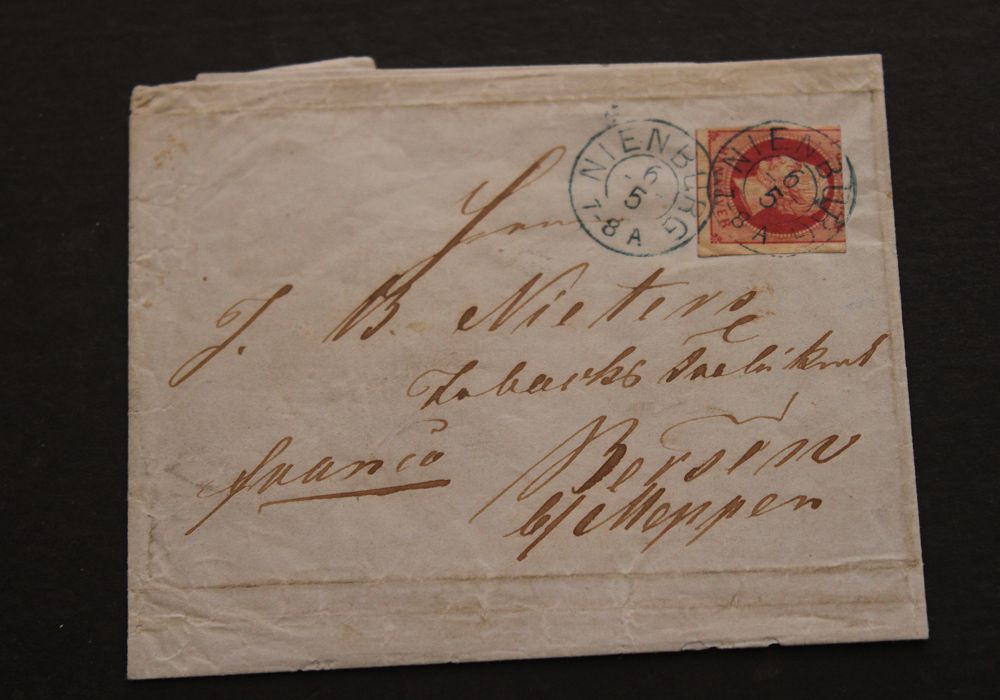 NIENBURG
6
5
7-8 A
NIENBURG
6
5
8 A
Herrn
J. B. Nieters
Tabacks Fabrikant
franco
Bersen
b/ Meppen